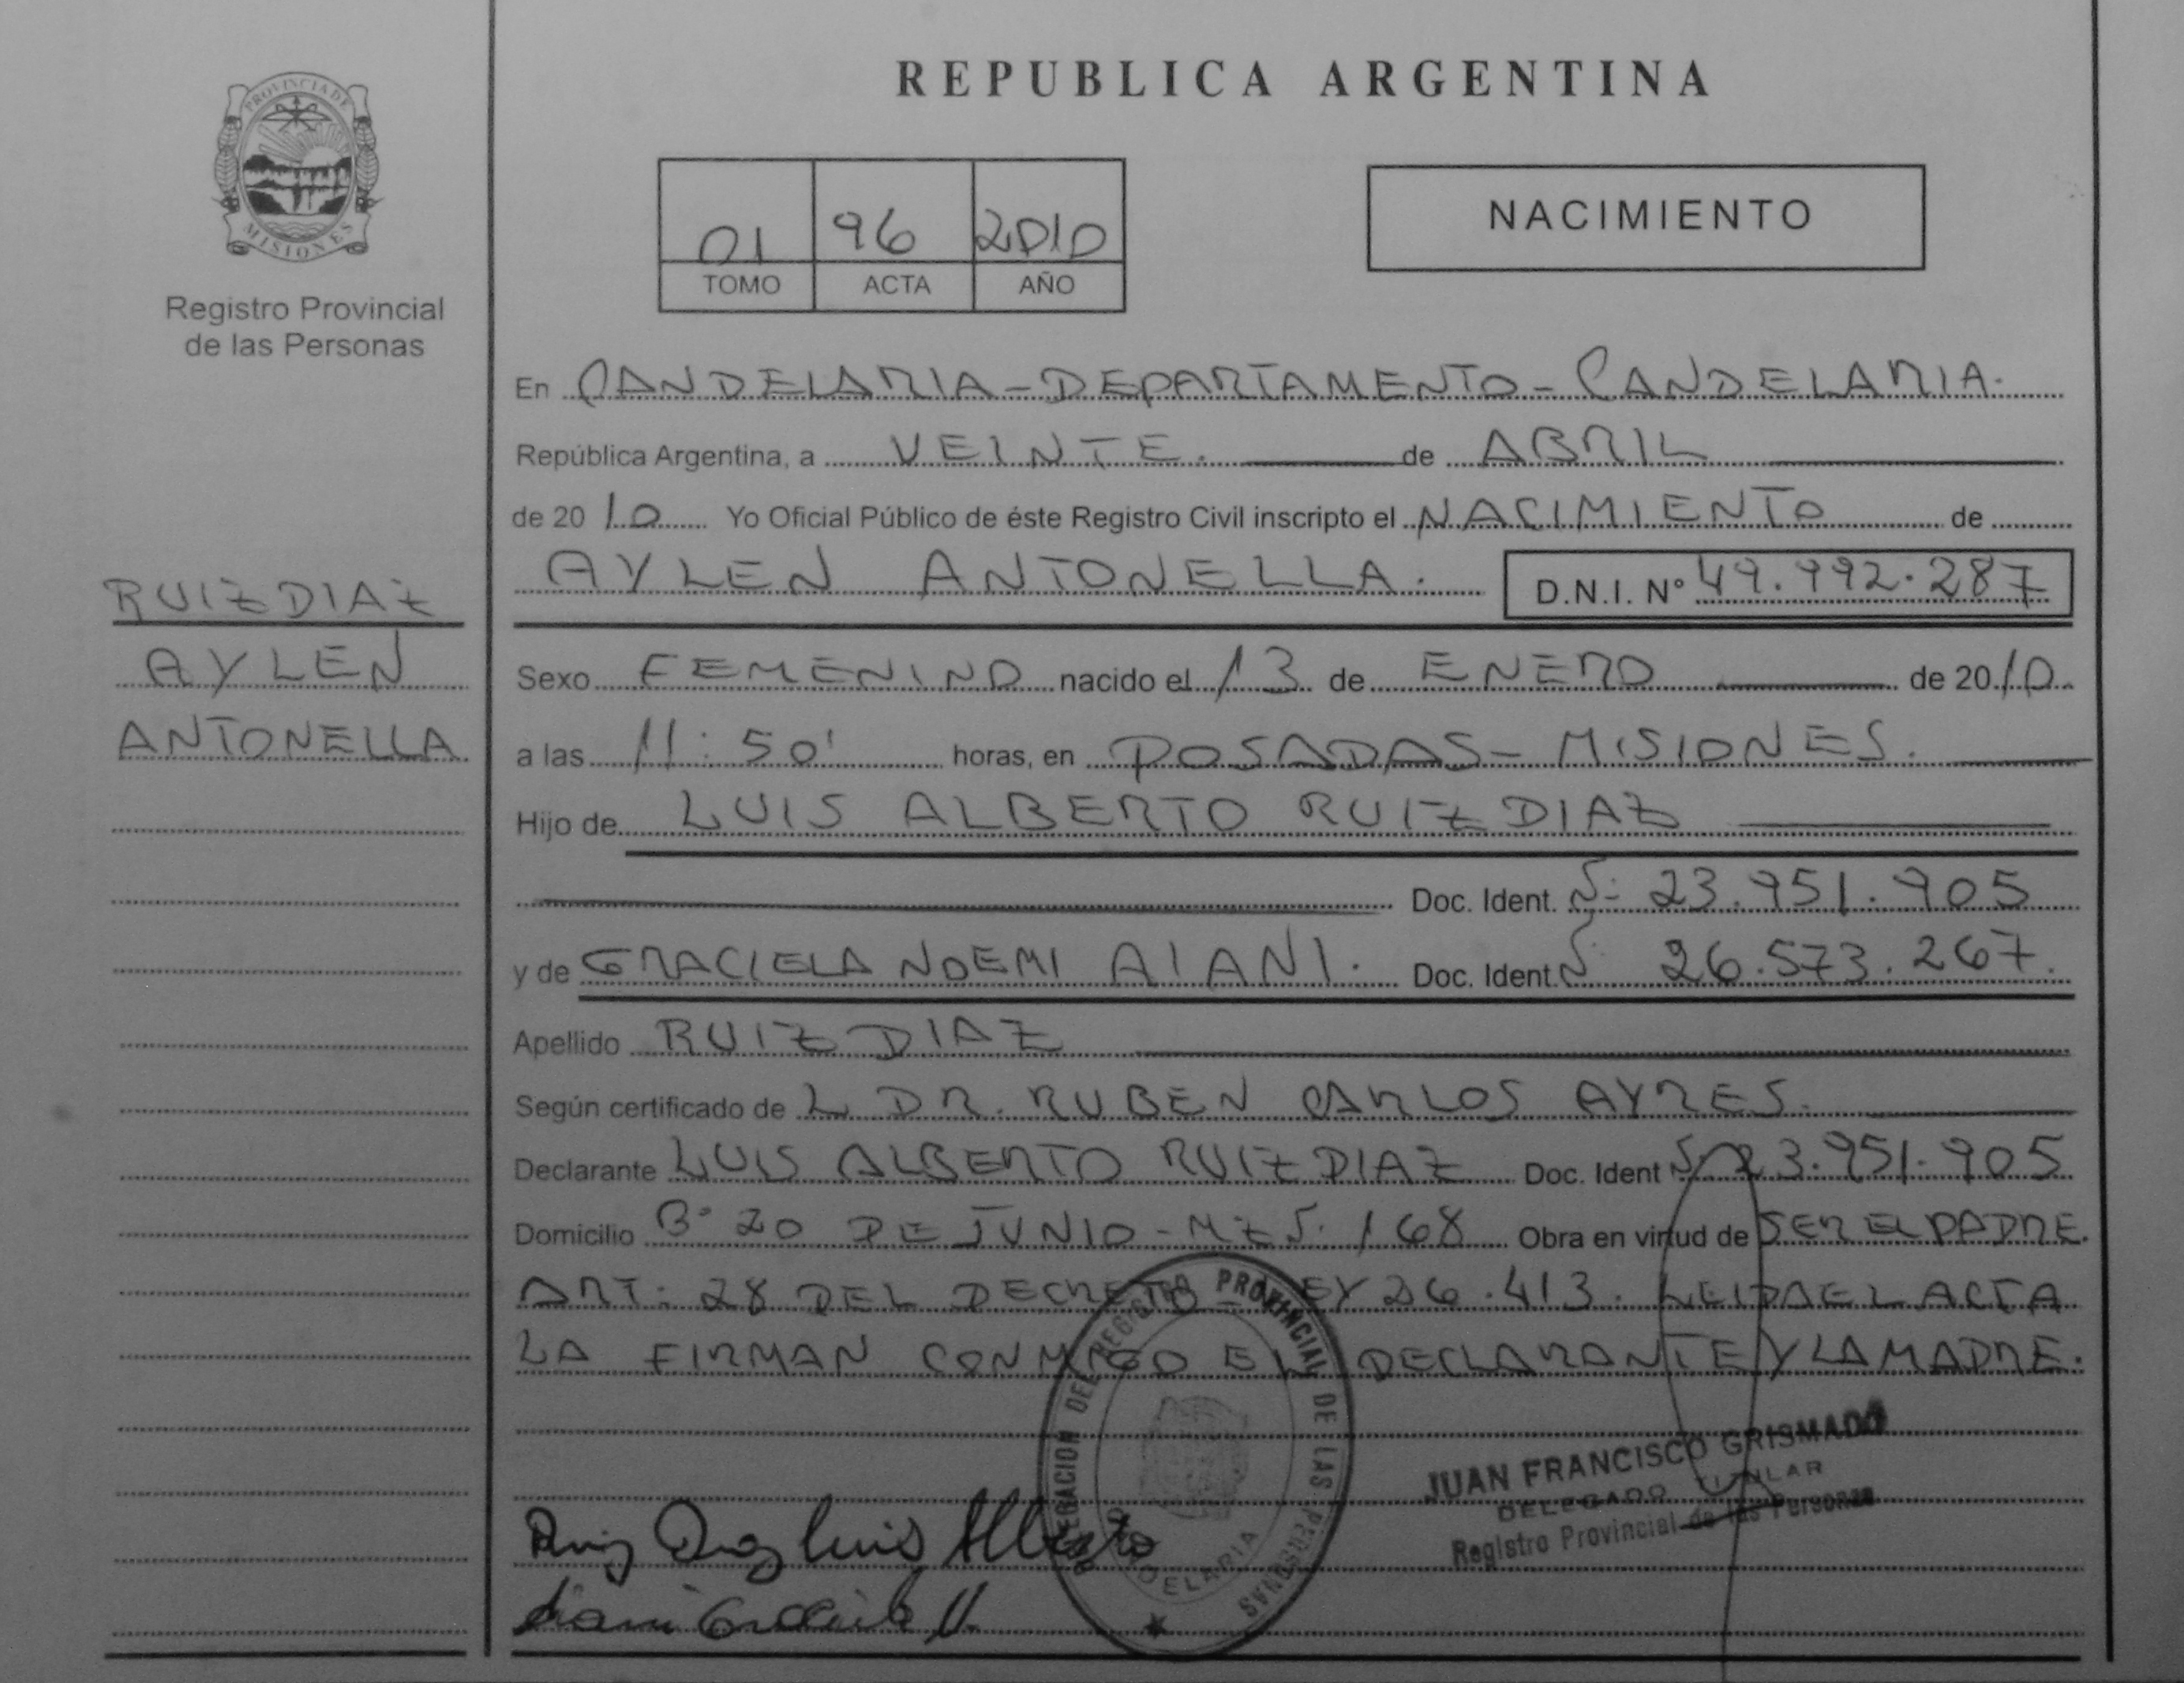 PROVINCIA DE
MISIONES
Registro Provincial
de las Personas
RUIZ DIAZ
AYLEN
ANTONELLA
REPUBLICA ARGENTINA
01 96 2010
TOMO ACTA AÑO
NACIMIENTO
En CANDELARIA - DEPARTAMENTO - CANDELARIA.
República Argentina, a VEINTE. de ABRIL
de 2010 Yo Oficial Público de éste Registro Civil inscripto el NACIMIENTO de
AYLEN ANTONELLA. D.N.I. Nº 49.992.287
Sexo FEMENINO nacido el 13 de ENERO de 2010
a las 11:50' horas, en POSADAS - MISIONES.
Hijo de LUIS ALBERTO RUIZ DIAZ
Doc. Ident. Nº 23.951.905
y de GRACIELA NOEMI AIANI. Doc. Ident. Nº 26.573.267.
Apellido RUIZ DIAZ
Según certificado de L DR. RUBEN CARLOS AYRES.
Declarante LUIS ALBERTO RUIZ DIAZ Doc. Ident Nº 23.951.905
Domicilio Bº 20 DE JUNIO - MZ N. 168 Obra en virtud de SER EL PADRE.
ART. 28 DEL DECRETO LEY 26.413. LEIDA EL ACTA
LA FIRMAN CONMIGO EL DECLARANTE Y LA MADRE.
DEL REGISTRO PROVINCIAL DE LAS PERSONAS
CANDELARIA
JUAN FRANCISCO GRISMADO
DELEGADO TITULAR
Registro Provincial de las Personas
Ruiz Diaz Luis Alberto
Aiani Graciela N.